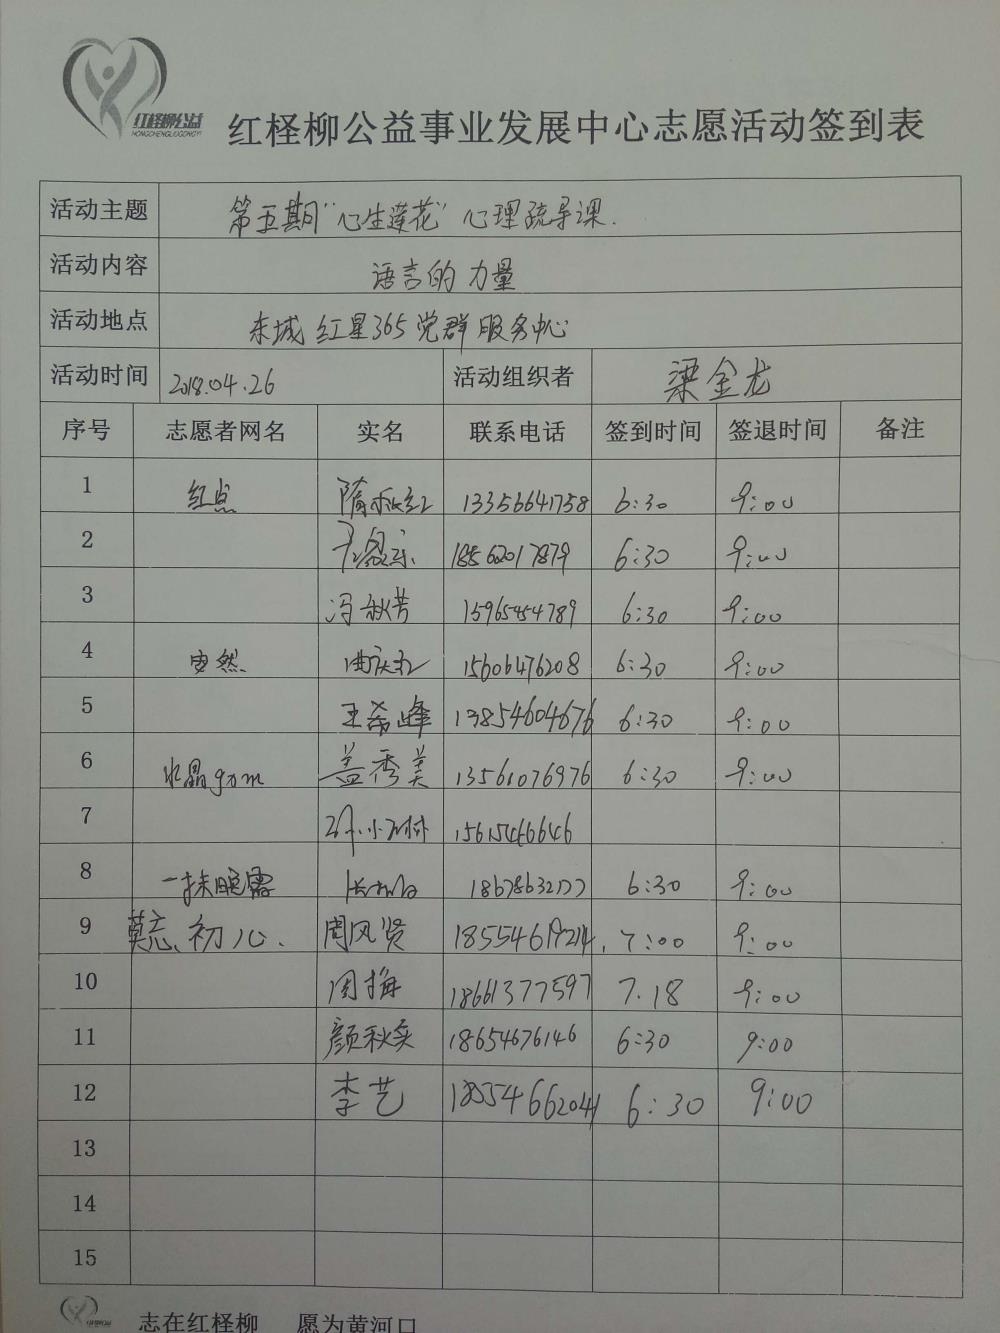 红柽柳公益
HONGCHENGLIUGONGYI
红柽柳公益事业发展中心志愿活动签到表
活动主题 第五期"心生莲花"心理疏导课.
活动内容 语言的力量
活动地点 东城红星365党群服务中心
活动时间 2018.04.26 活动组织者 梁金龙
序号 志愿者网名 实名 联系电话 签到时间 签退时间 备注
1 红点 隋秋红 13356641758 6:30 9:00
2 18562017879 6:30 9:00
3 冯秋芳 15965454789 6:30 9:00
4 安然 曲庆红 15606476208 6:30 9:00
5 王希峰 13854604676 6:30 9:00
6 水晶gym 盖秀美 13561076976 6:30 9:00
7 15615466646
8 一抹晚霞 18678632177 6:30 9:00
9 莫忘、初心. 周风贤 18554619214. 7:00 9:00
10 周梅 18661377597 7.18 9:00
11 颜秋奕 18654676146 6:30 9:00
12 李艺 18554662041 6:30 9:00
13
14
15
志在红柽柳 愿为黄河口